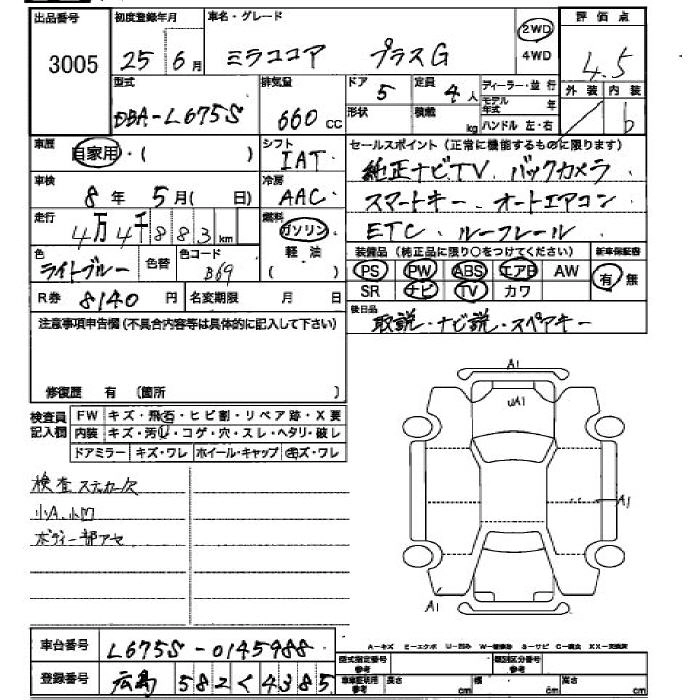 出品番号 初度登録年月 車名・グレード 評価点
3005 25年6月 ミラココア プラスG 2WD 4WD 4.5
型式 排気量 ドア 定員 ディーラー・並行 外装 内装
DBA-L675S 660cc 5 4人 モデル年式 年 b
形状 積載 kg ハンドル 左・右
車歴 自家用・( ) シフト IAT セールスポイント(正常に機能するものに限ります)
純正ナビTV、バックカメラ
車検 8年5月( 日) 冷房 AAC スマートキー、オートエアコン
走行 4万4千883km 燃料 ガソリン 軽油 ( ) ETC、ルーフレール
色 ライトブルー 色替 色コード B69
装備品(純正品に限り○をつけてください) 新車保証書
PS PW ABS エアB AW 有・無
SR ナビ TV カワ
R券 8140円 名変期限 月 日
後日品 取説・ナビ説・スペアキー
注意事項申告欄(不具合内容等は具体的に記入して下さい)
修復歴 有 (箇所 )
検査員記入欄
FW キズ・飛石・ヒビ割・リペア跡・X要
内装 キズ・汚れ・コゲ・穴・スレ・ヘタリ・破レ
ドアミラー キズ・ワレ ホイール・キャップ キズ・ワレ
検査ステッカー欠
小A、小凹
ボディ一部アセ
A1
UA1
A1
A1
車台番号 L675S-0145988
登録番号 広島 582く4385
A-キズ E-エクボ U-凹み W-補修跡 S-サビ C-腐食 XX-交換済
型式指定番号参考 類別区分番号参考
車庫証明用参考 長さ cm 幅 cm 高さ cm